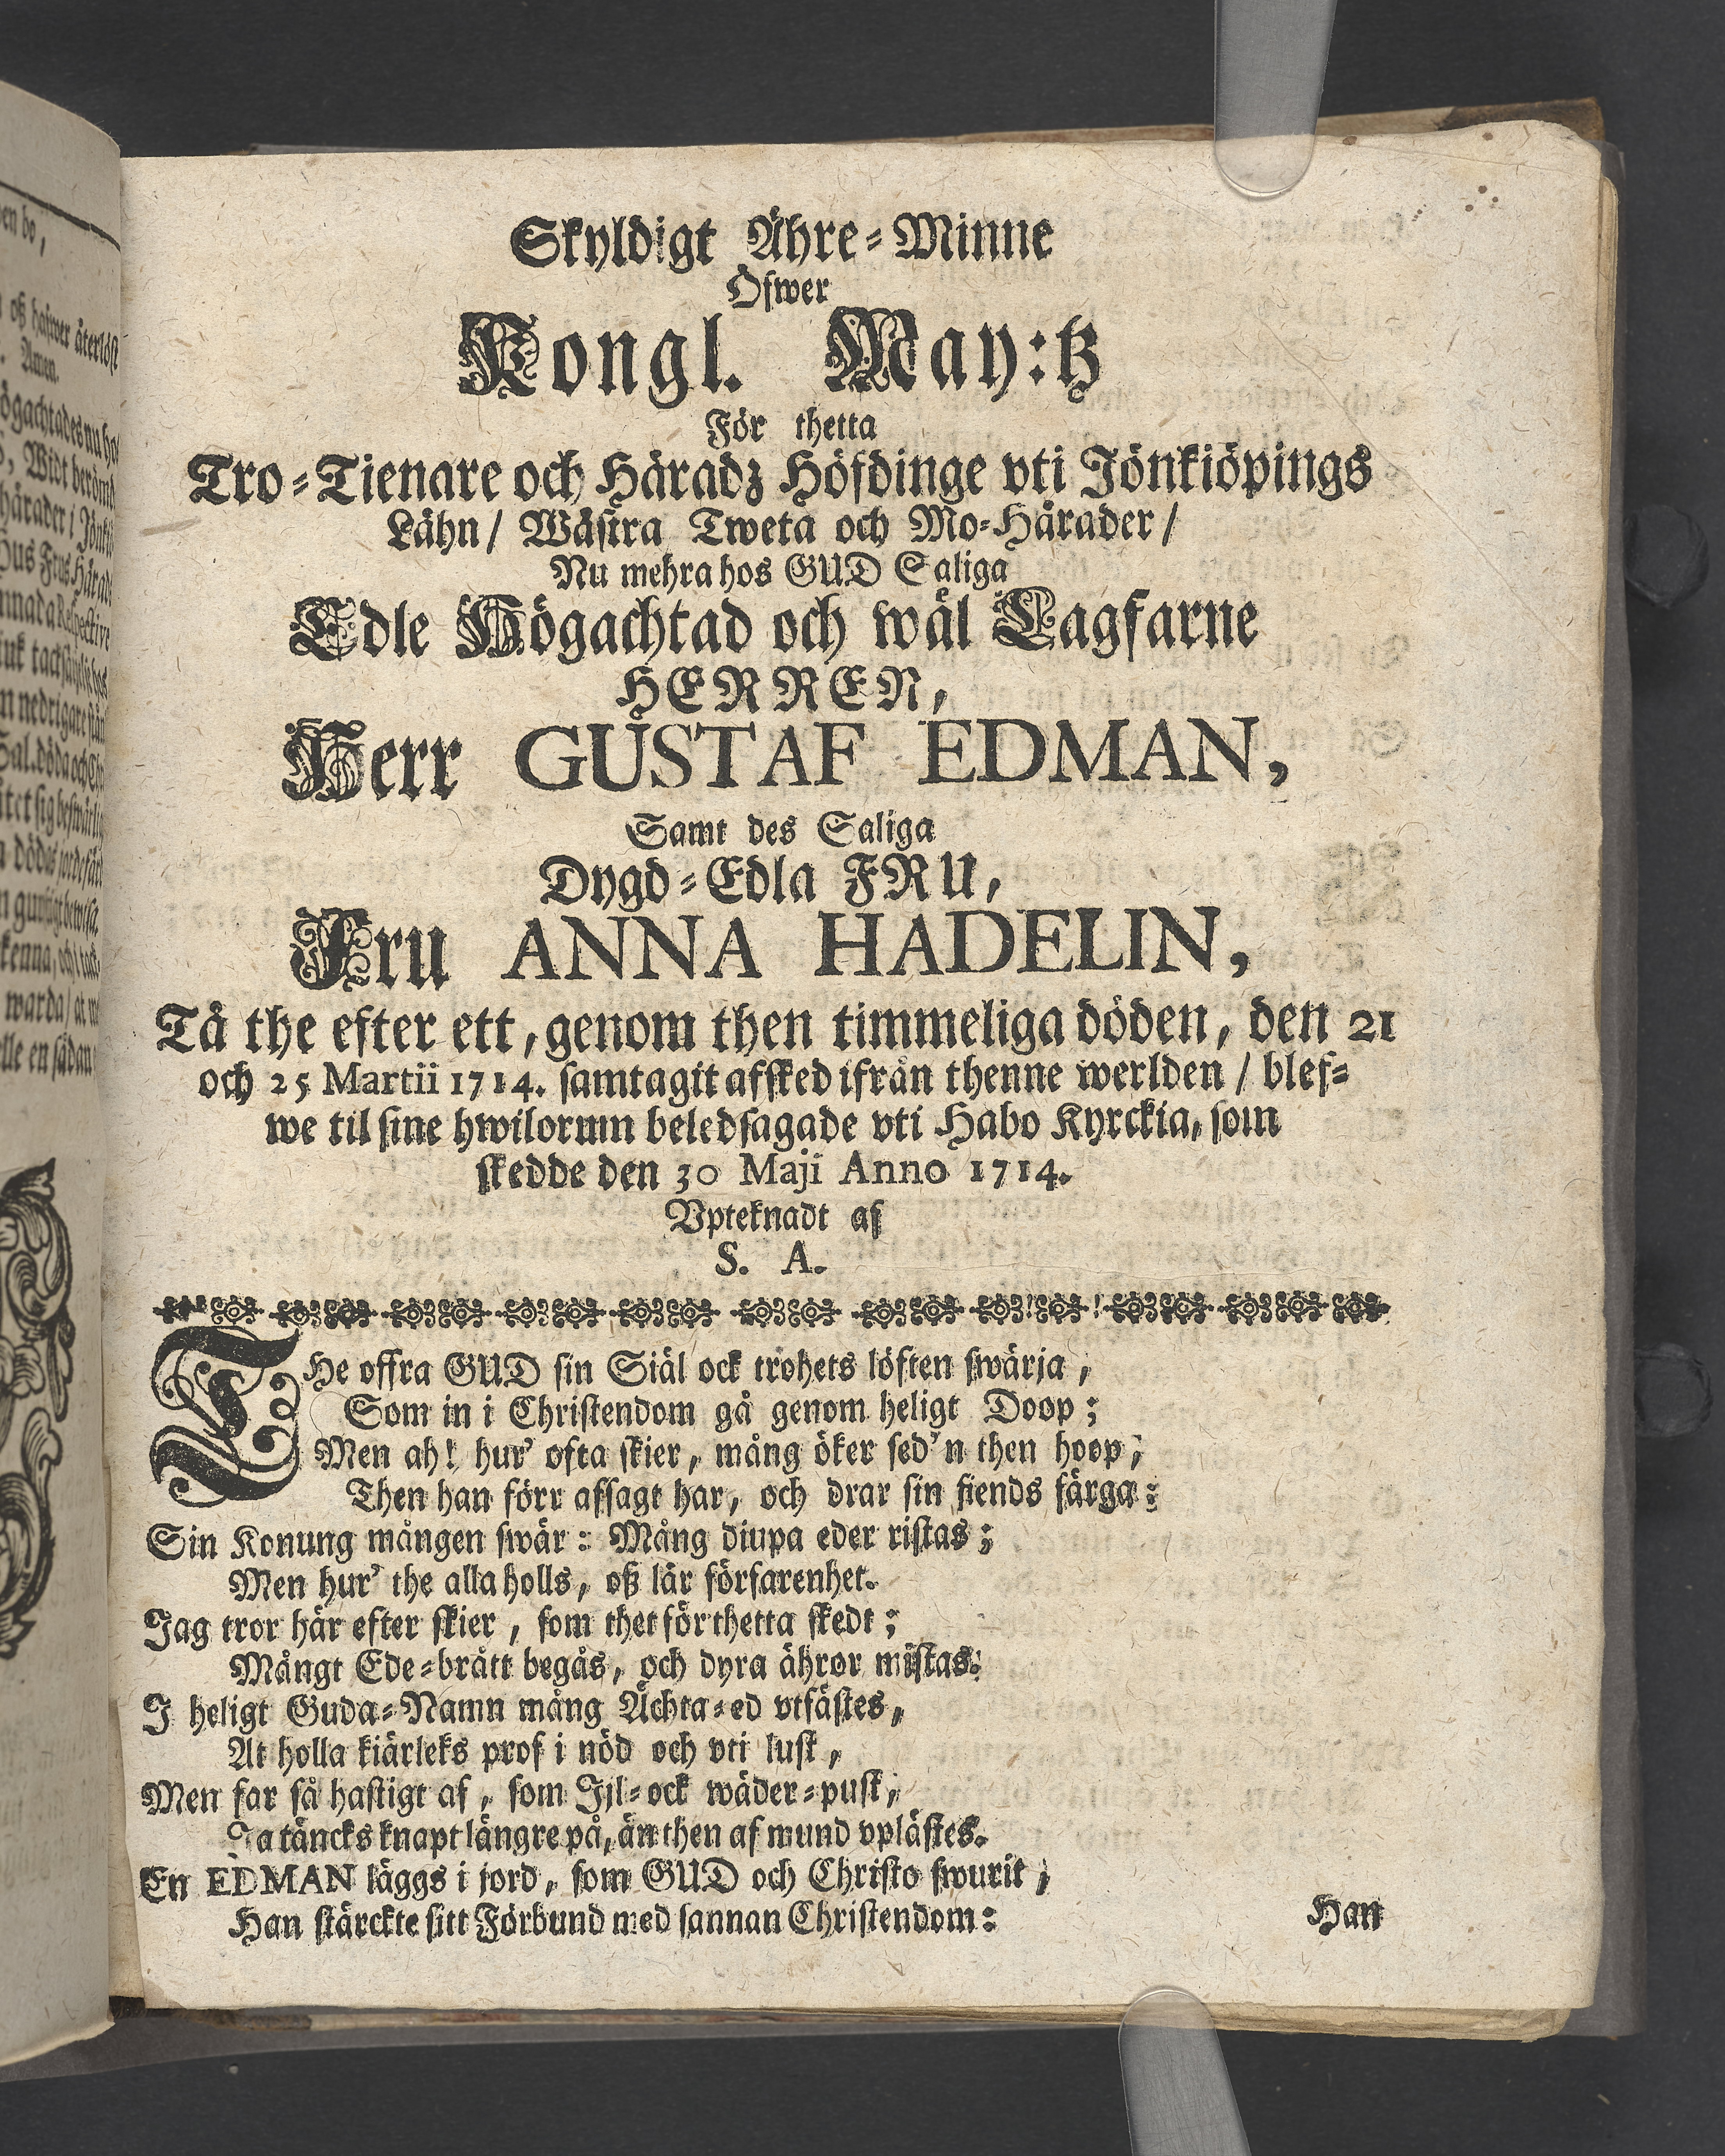 Skyldigt Ähre-Minne
Öfwer
Kongl. May:tz
För thetta
Tro-Tienare och Häradz Höfdinge vti Jönkiöpings
Lähn/ Wästra Tweta och Mo-Härader/
Nu mehra hos GUD Saliga
Edle Högachtad och wäl Lagfarne
HERREN,
Herr GUSTAF EDMAN,
Samt des Saliga
Dygd-Edla FRU,
Fru ANNA HADELIN,
Tå the efter ett, genom then timmeliga döden, den 21
och 25 Martii 1714. samtagit afsked ifrån thenne werlden / blef-
we til sine hwilorum beledsagade vti Habo Kyrckia, som
skedde den 30 Maji Anno 1714.
Vpteknadt af
S. A.
THe offra GUD sin Siäl ock trohets löften swärja,
Som in i Christendom gå genom heligt Doop;
Men ah! hur' ofta skier, mång öker sed'n then hoop,
Then han förr afsagt har, och drar sin fiends färga:
Sin Konung mången swär: Mång diupa eder ristas;
Men hur' the alla holls, oß lär förfarenhet.
Jag tror här efter skier, som thet för thetta skedt;
Mångt Ede-brått begås, och dyra ähror mistas:
I heligt Guda-Namn mång Ächta-ed vtfästes,
At holla kiärleks prof i nöd och vti lust,
Men far så hastigt af, som Jjl-ock wäder-pust,
Ja täncks knapt längre på, än then af mund vplästes.
En EDMAN läggs i jord, som GUD och Christo swurit,
Han stärckte sitt Förbund med sannan Christendom:
Han